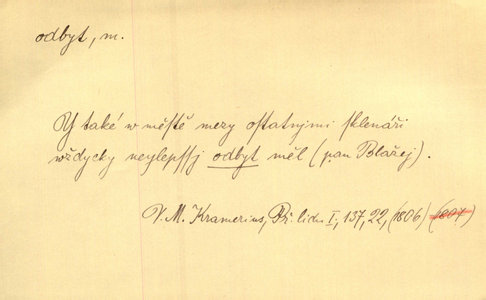 odbyt, m.
Y také w městě mezy ostatnjmi sklenáři
wždycky neylepssj odbyt měl (pan Blažej).
V. M. Kramerius, Př. lidu I, 137, 22, (1806)